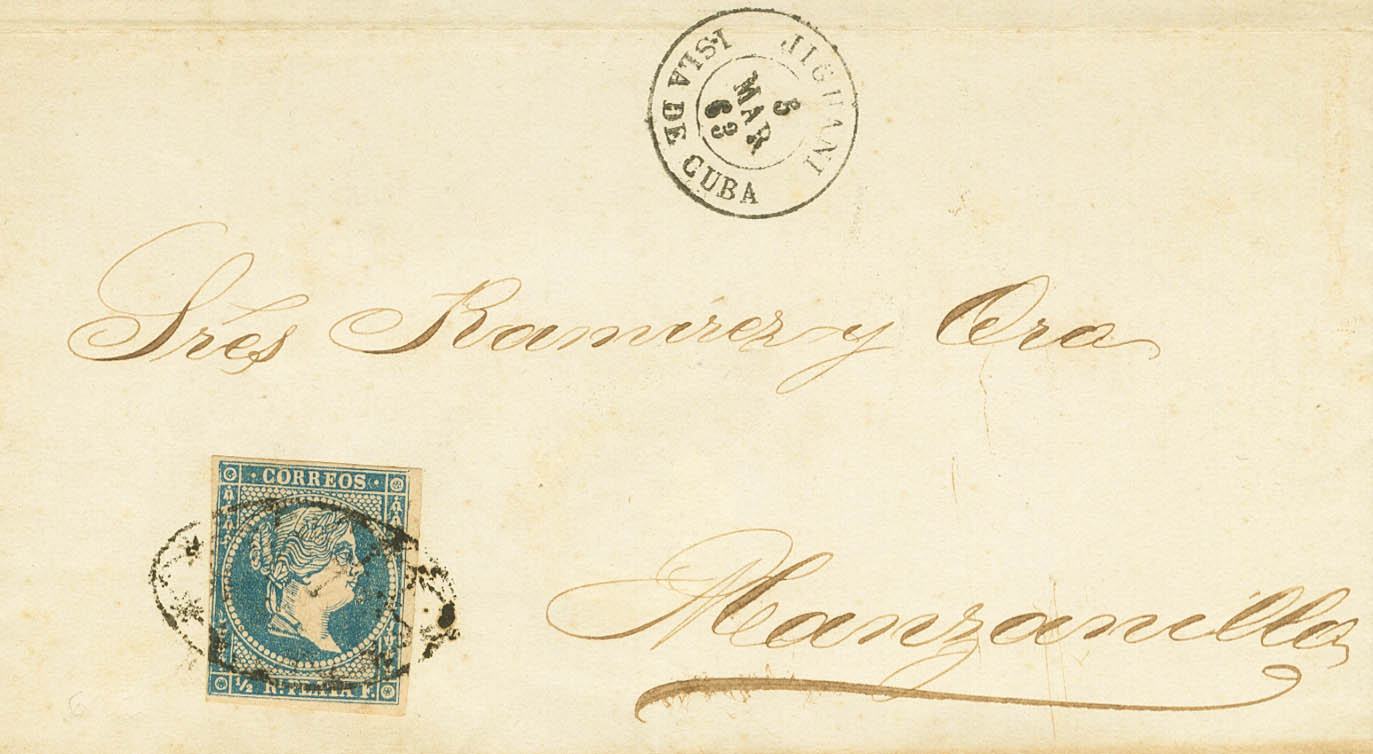 JIGUANI
5
MAR
63
ISLA DE CUBA
Sres Ramirez y Oro
Manzanillo
CORREOS
1/2 Rl PLATA F.